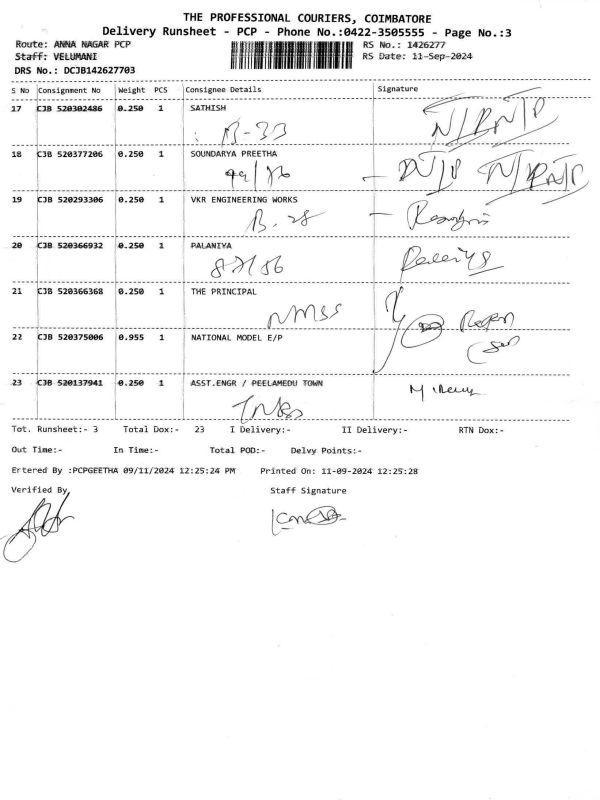 THE PROFESSIONAL COURIERS, COIMBATORE
Delivery Runsheet - PCP - Phone No.:0422-3505555 - Page No.:3
Route: ANNA NAGAR PCP RS No.: 1426277
Staff: VELUMANI RS Date: 11-Sep-2024
DRS No.: DCJB142627703
S No Consignment No Weight PCS Consignee Details Signature
17 CJB 520302486 0.250 1 SATHISH
B-33
18 CJB 520377206 0.250 1 SOUNDARYA PREETHA
19 CJB 520293306 0.250 1 VKR ENGINEERING WORKS
B.28
20 CJB 520366932 0.250 1 PALANIYA
21 CJB 520366368 0.250 1 THE PRINCIPAL
NMSS
22 CJB 520375006 0.955 1 NATIONAL MODEL E/P
23 CJB 520137941 0.250 1 ASST.ENGR / PEELAMEDU TOWN
Tot. Runsheet:- 3 Total Dox:- 23 I Delivery:- II Delivery:- RTN Dox:-
Out Time:- In Time:- Total POD:- Delvy Points:-
Ertered By :PCPGEETHA 09/11/2024 12:25:24 PM Printed On: 11-09-2024 12:25:28
Verified By Staff Signature